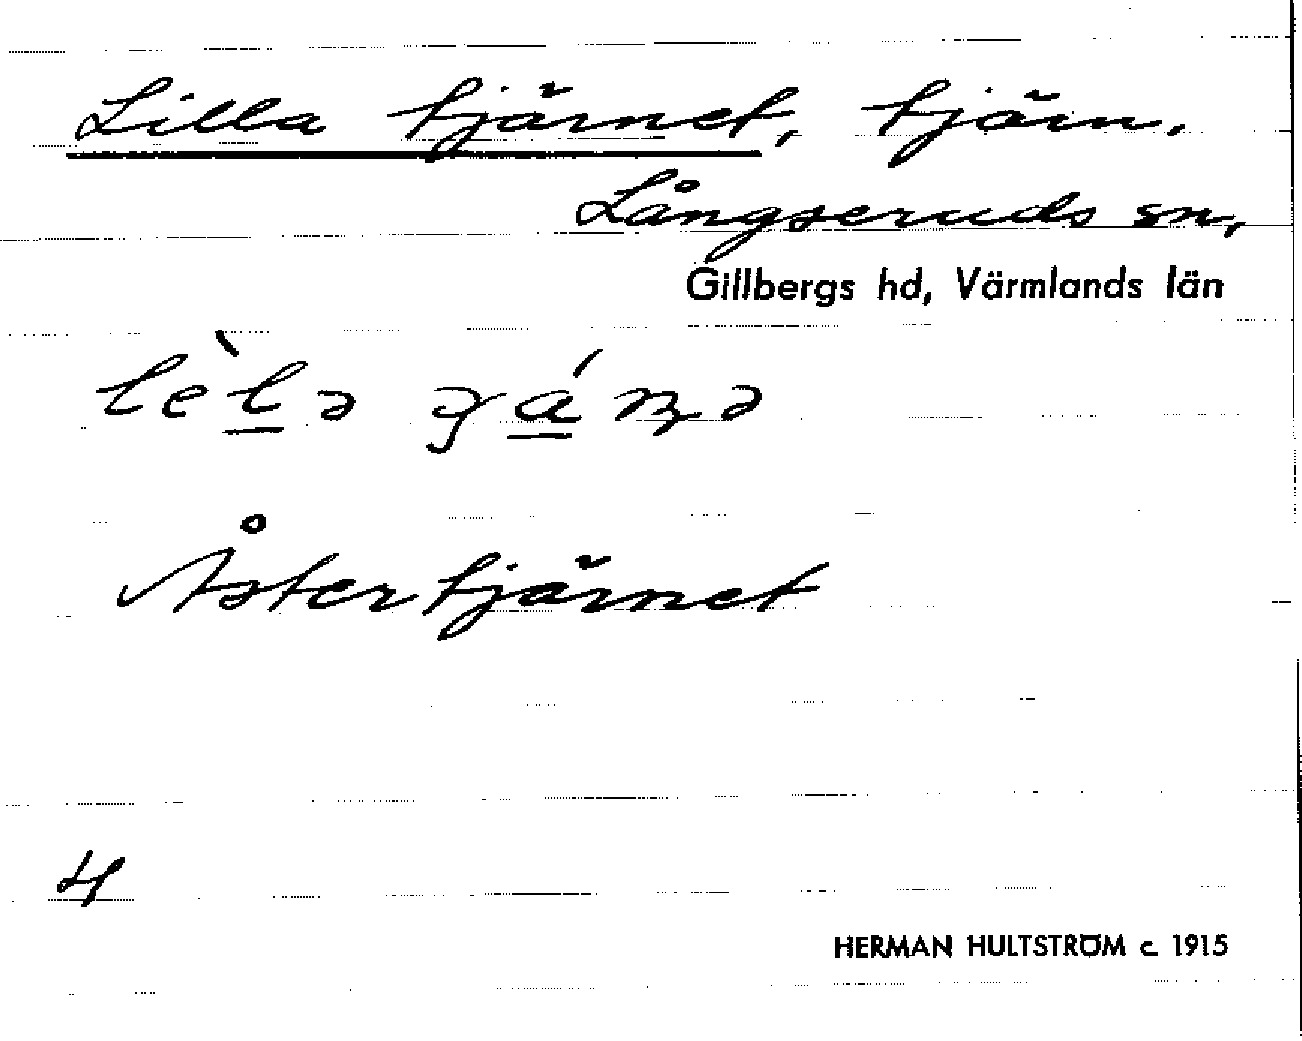 Lilla tjärnet, tjärn.
Långseruds sn,
Gillbergs hd, Värmlands län
Åstertjärnet
4
HERMAN HULTSTRÖM c. 1915